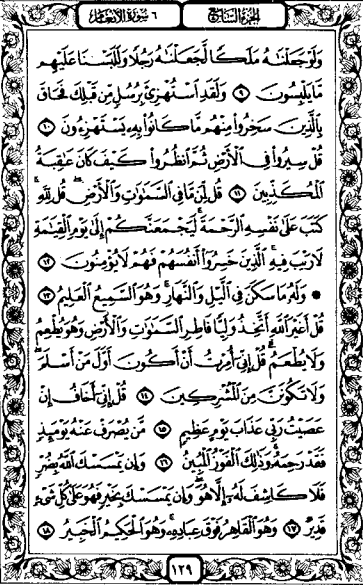 الجزء السابع ٦ سورة الأنعام
وَلَوْ جَعَلْنَٰهُ مَلَكًا لَّجَعَلْنَٰهُ رَجُلًا وَلَلَبَسْنَا عَلَيْهِم
مَّا يَلْبِسُونَ ٩ وَلَقَدِ ٱسْتُهْزِئَ بِرُسُلٍ مِّن قَبْلِكَ فَحَاقَ
بِٱلَّذِينَ سَخِرُوا۟ مِنْهُم مَّا كَانُوا۟ بِهِۦ يَسْتَهْزِءُونَ ١٠
قُلْ سِيرُوا۟ فِى ٱلْأَرْضِ ثُمَّ ٱنظُرُوا۟ كَيْفَ كَانَ عَٰقِبَةُ
ٱلْمُكَذِّبِينَ ١١ قُل لِّمَن مَّا فِى ٱلسَّمَٰوَٰتِ وَٱلْأَرْضِ ۖ قُل لِّلَّهِ ۚ
كَتَبَ عَلَىٰ نَفْسِهِ ٱلرَّحْمَةَ ۚ لَيَجْمَعَنَّكُمْ إِلَىٰ يَوْمِ ٱلْقِيَٰمَةِ
لَا رَيْبَ فِيهِ ۚ ٱلَّذِينَ خَسِرُوٓا۟ أَنفُسَهُمْ فَهُمْ لَا يُؤْمِنُونَ ١٢
۞ وَلَهُۥ مَا سَكَنَ فِى ٱلَّيْلِ وَٱلنَّهَارِ ۚ وَهُوَ ٱلسَّمِيعُ ٱلْعَلِيمُ ١٣
قُلْ أَغَيْرَ ٱللَّهِ أَتَّخِذُ وَلِيًّا فَاطِرِ ٱلسَّمَٰوَٰتِ وَٱلْأَرْضِ وَهُوَ يُطْعِمُ
وَلَا يُطْعَمُ ۗ قُلْ إِنِّىٓ أُمِرْتُ أَنْ أَكُونَ أَوَّلَ مَنْ أَسْلَمَ ۖ
وَلَا تَكُونَنَّ مِنَ ٱلْمُشْرِكِينَ ١٤ قُلْ إِنِّىٓ أَخَافُ إِنْ
عَصَيْتُ رَبِّى عَذَابَ يَوْمٍ عَظِيمٍ ١٥ مَّن يُصْرَفْ عَنْهُ يَوْمَئِذٍ
فَقَدْ رَحِمَهُۥ ۚ وَذَٰلِكَ ٱلْفَوْزُ ٱلْمُبِينُ ١٦ وَإِن يَمْسَسْكَ ٱللَّهُ بِضُرٍّ
فَلَا كَاشِفَ لَهُۥٓ إِلَّا هُوَ ۖ وَإِن يَمْسَسْكَ بِخَيْرٍ فَهُوَ عَلَىٰ كُلِّ شَىْءٍ
قَدِيرٌ ١٧ وَهُوَ ٱلْقَاهِرُ فَوْقَ عِبَادِهِۦ ۚ وَهُوَ ٱلْحَكِيمُ ٱلْخَبِيرُ ١٨
١٢٩